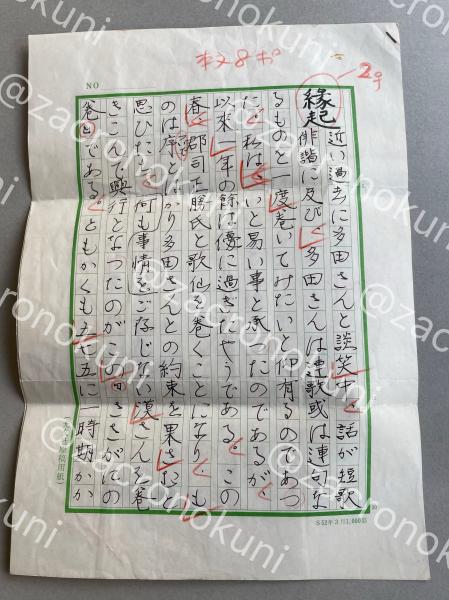 本文8ポ
2号
NO
縁起
近い過去に多田さんと談笑中、話が短歌
俳諧に及び、多田さんは連歌或は連句な
るものと一度巻いてみたいと仰有るのであつ
た。私はいと易い事と承つたのであるが、
以来一年の余は優に過ぎたやうである。この
春、郡司正勝氏と歌仙を巻くことになり、も
のは序とばかり多田さんとの約束を果さむと
思ひたつて何も事情をごなじない さんを巻
きこんで興行となつたのがこの ささがにの
巻 である。ともかくも 五に一時期かか
S52年3月1,000部
@zacronokuni
@zacronokuni
@zacronokuni
@zacronokuni
@zacronokuni